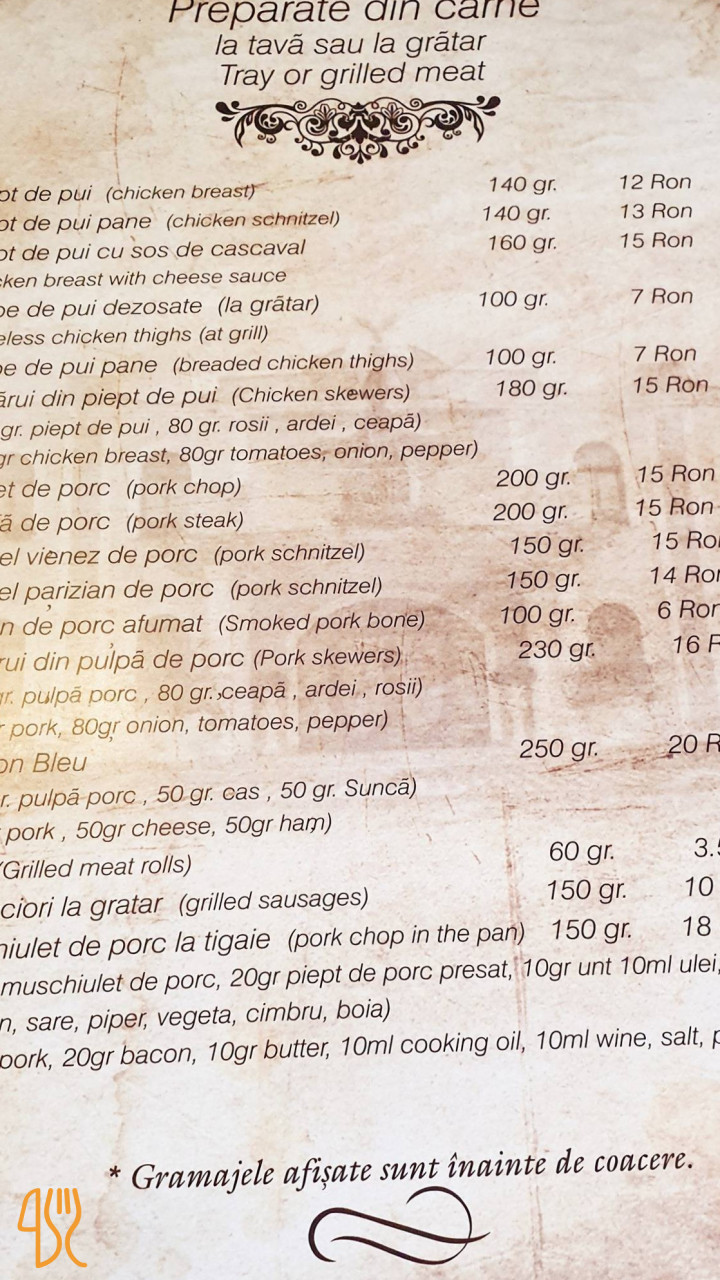 Preparate din carne
la tavã sau la grãtar
Tray or grilled meat
pt de pui (chicken breast) 140 gr. 12 Ron
pt de pui pane (chicken schnitzel) 140 gr. 13 Ron
pt de pui cu sos de cascaval 160 gr. 15 Ron
cken breast with cheese sauce
pe de pui dezosate (la grãtar) 100 gr. 7 Ron
eless chicken thighs (at grill)
pe de pui pane (breaded chicken thighs) 100 gr. 7 Ron
ãrui din piept de pui (Chicken skewers) 180 gr. 15 Ron
gr. piept de pui , 80 gr. rosii , ardei , ceapã)
gr chicken breast, 80gr tomatoes, onion, pepper)
et de porc (pork chop) 200 gr. 15 Ron
ã de porc (pork steak) 200 gr. 15 Ron
el vienez de porc (pork schnitzel) 150 gr. 15 Ron
el parizian de porc (pork schnitzel) 150 gr. 14 Ron
n de porc afumat (Smoked pork bone) 100 gr. 6 Ron
rui din pulpã de porc (Pork skewers) 230 gr. 16 R
gr. pulpã porc , 80 gr. ceapã , ardei , rosii)
r pork, 80gr onion, tomatoes, pepper)
on Bleu 250 gr. 20 R
r. pulpã porc , 50 gr. cas , 50 gr. Suncã)
pork , 50gr cheese, 50gr ham)
(Grilled meat rolls) 60 gr. 3.5
ciori la gratar (grilled sausages) 150 gr. 10
hiulet de porc la tigaie (pork chop in the pan) 150 gr. 18
muschiulet de porc, 20gr piept de porc presat, 10gr unt 10ml ulei,
n, sare, piper, vegeta, cimbru, boia)
pork, 20gr bacon, 10gr butter, 10ml cooking oil, 10ml wine, salt, p
* Gramajele afișate sunt înainte de coacere.